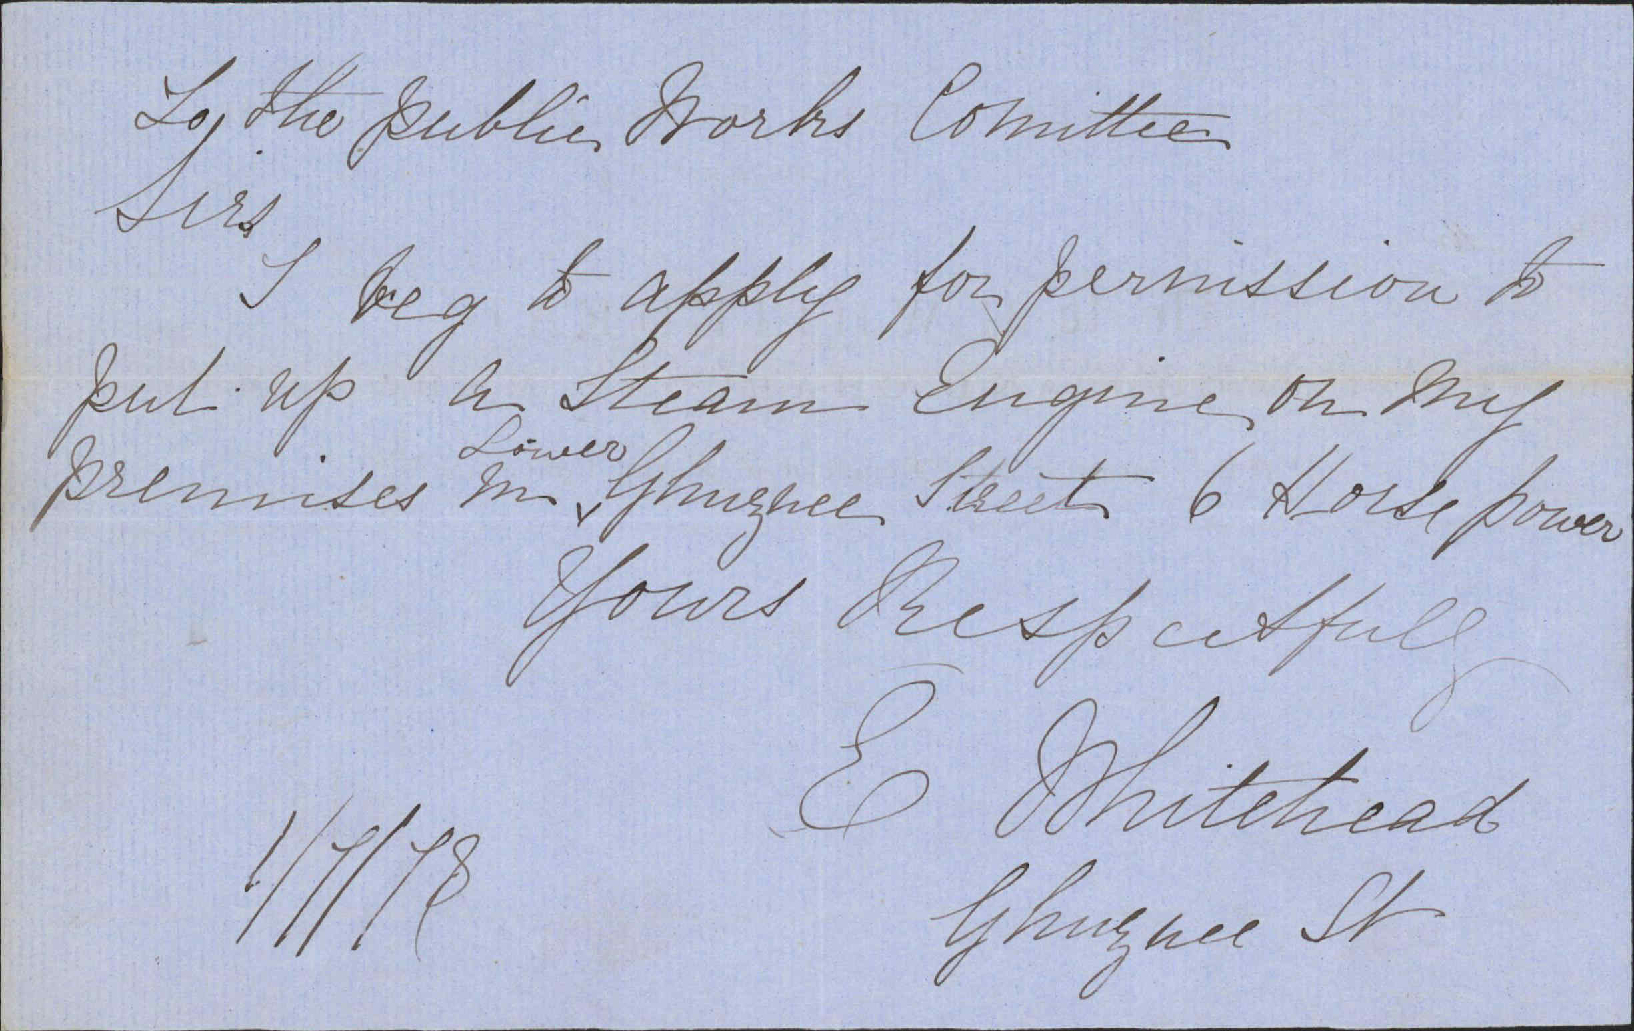 To the Public Works Comittee
Sirs
I beg to apply for permission to
put up a Steam Engine on my
premises in Lower Ghuznee Street 6 Horse power
Yours Respectfully
E Whitehead
Ghuznee St
1/7/78